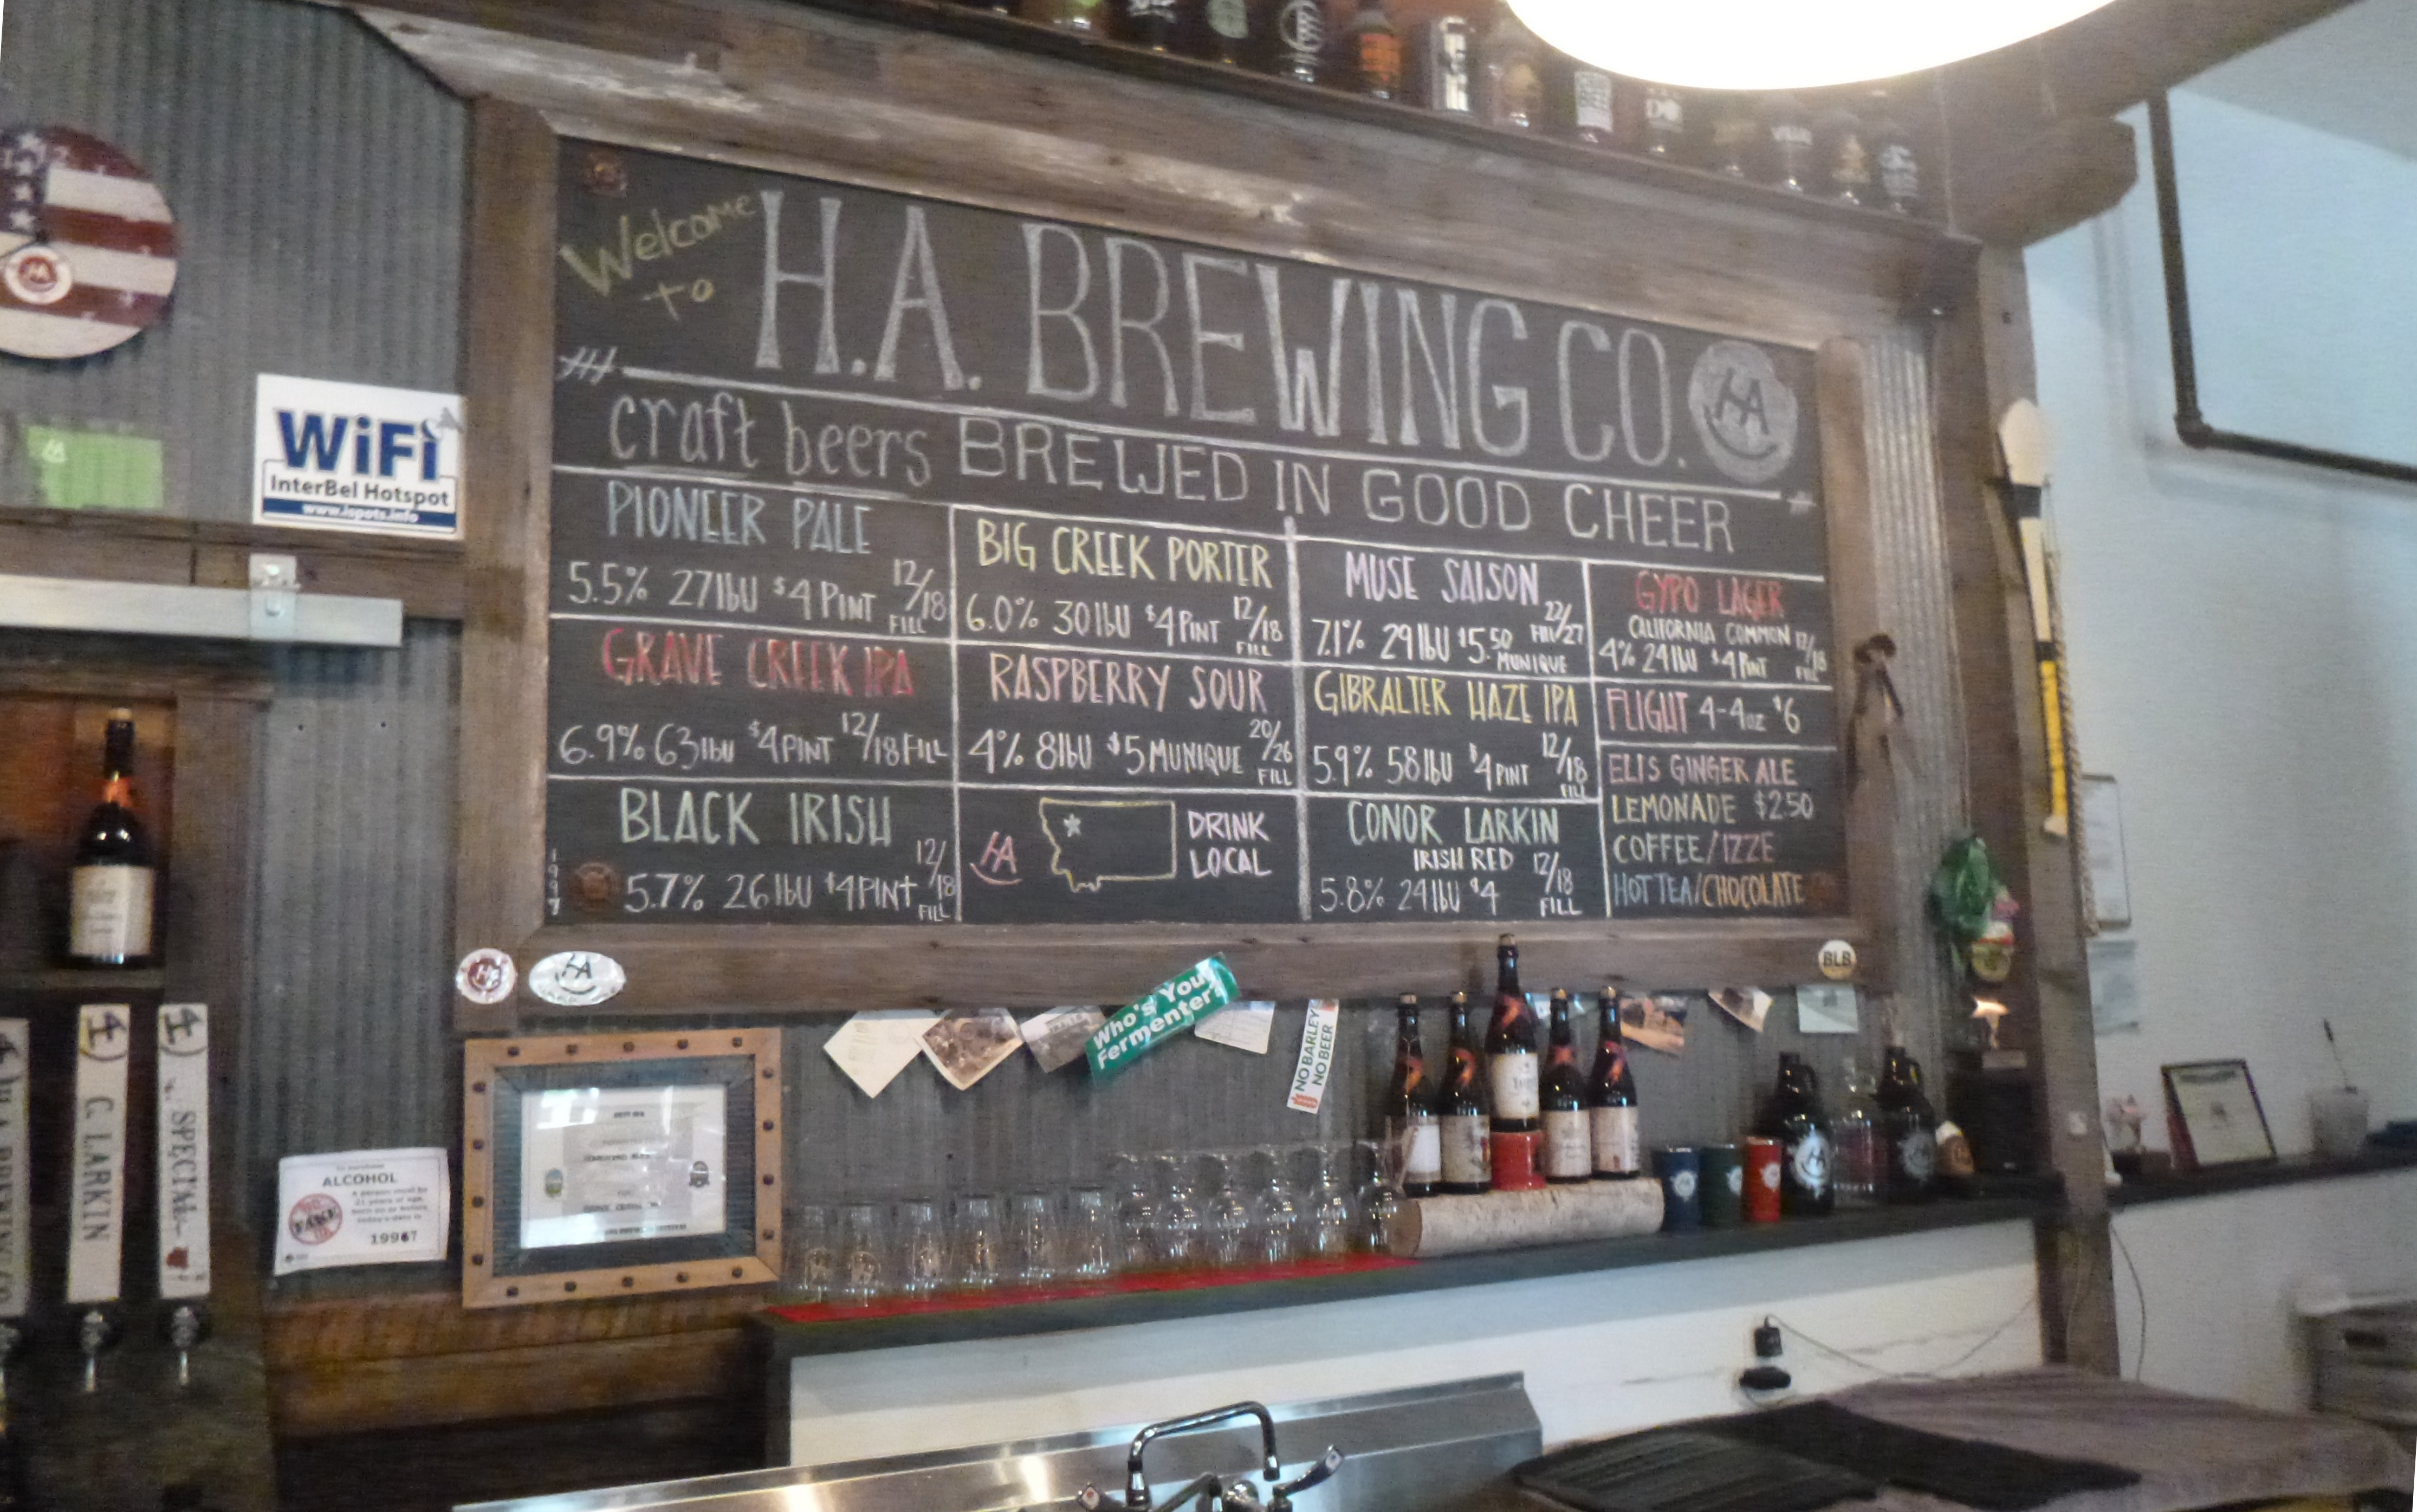 Welcome
to
H.A. BREWING CO.
HA
craft beers BREWED IN GOOD CHEER
PIONEER PALE
5.5% 27IbU $4 PINT 12/18
FILL
GRAVE CREEK IPA
6.9% 63IbU $4PINT 12/18 FILL
BLACK IRISH
5.7% 26IbU $4PINt 12/18
FILL
1997
BIG CREEK PORTER
6.0% 30IbU $4PINT 12/18
FILL
RASPBERRY SOUR
4% 8IbU $5 MUNIQUE 20/26
FILL
HA
DRINK
LOCAL
MUSE SAISON
7.1% 29IbU $5.50 22/27
FILL
MUNIQUE
GIBRALTER HAZE IPA
5.9% 58IbU $4PINT 12/18
FILL
CONOR LARKIN
IRISH RED
5.8% 24IbU $4 12/18
FILL
GYPO LAGER
CALIFORNIA COMMON
4% 24IbU $4PINT 12/18
FILL
FLIGHT 4-4oz $6
ELIS GINGER ALE
LEMONADE $2.50
COFFEE/IZZE
HOT TEA/CHOCOLATE
WiFi
InterBel Hotspot
www.ispots.info
HA
BLB
Who's Your
Fermenter?
NO BARLEY
NO BEER
C. LARKIN
SPECIAL
ALCOHOL
FAKE
1997